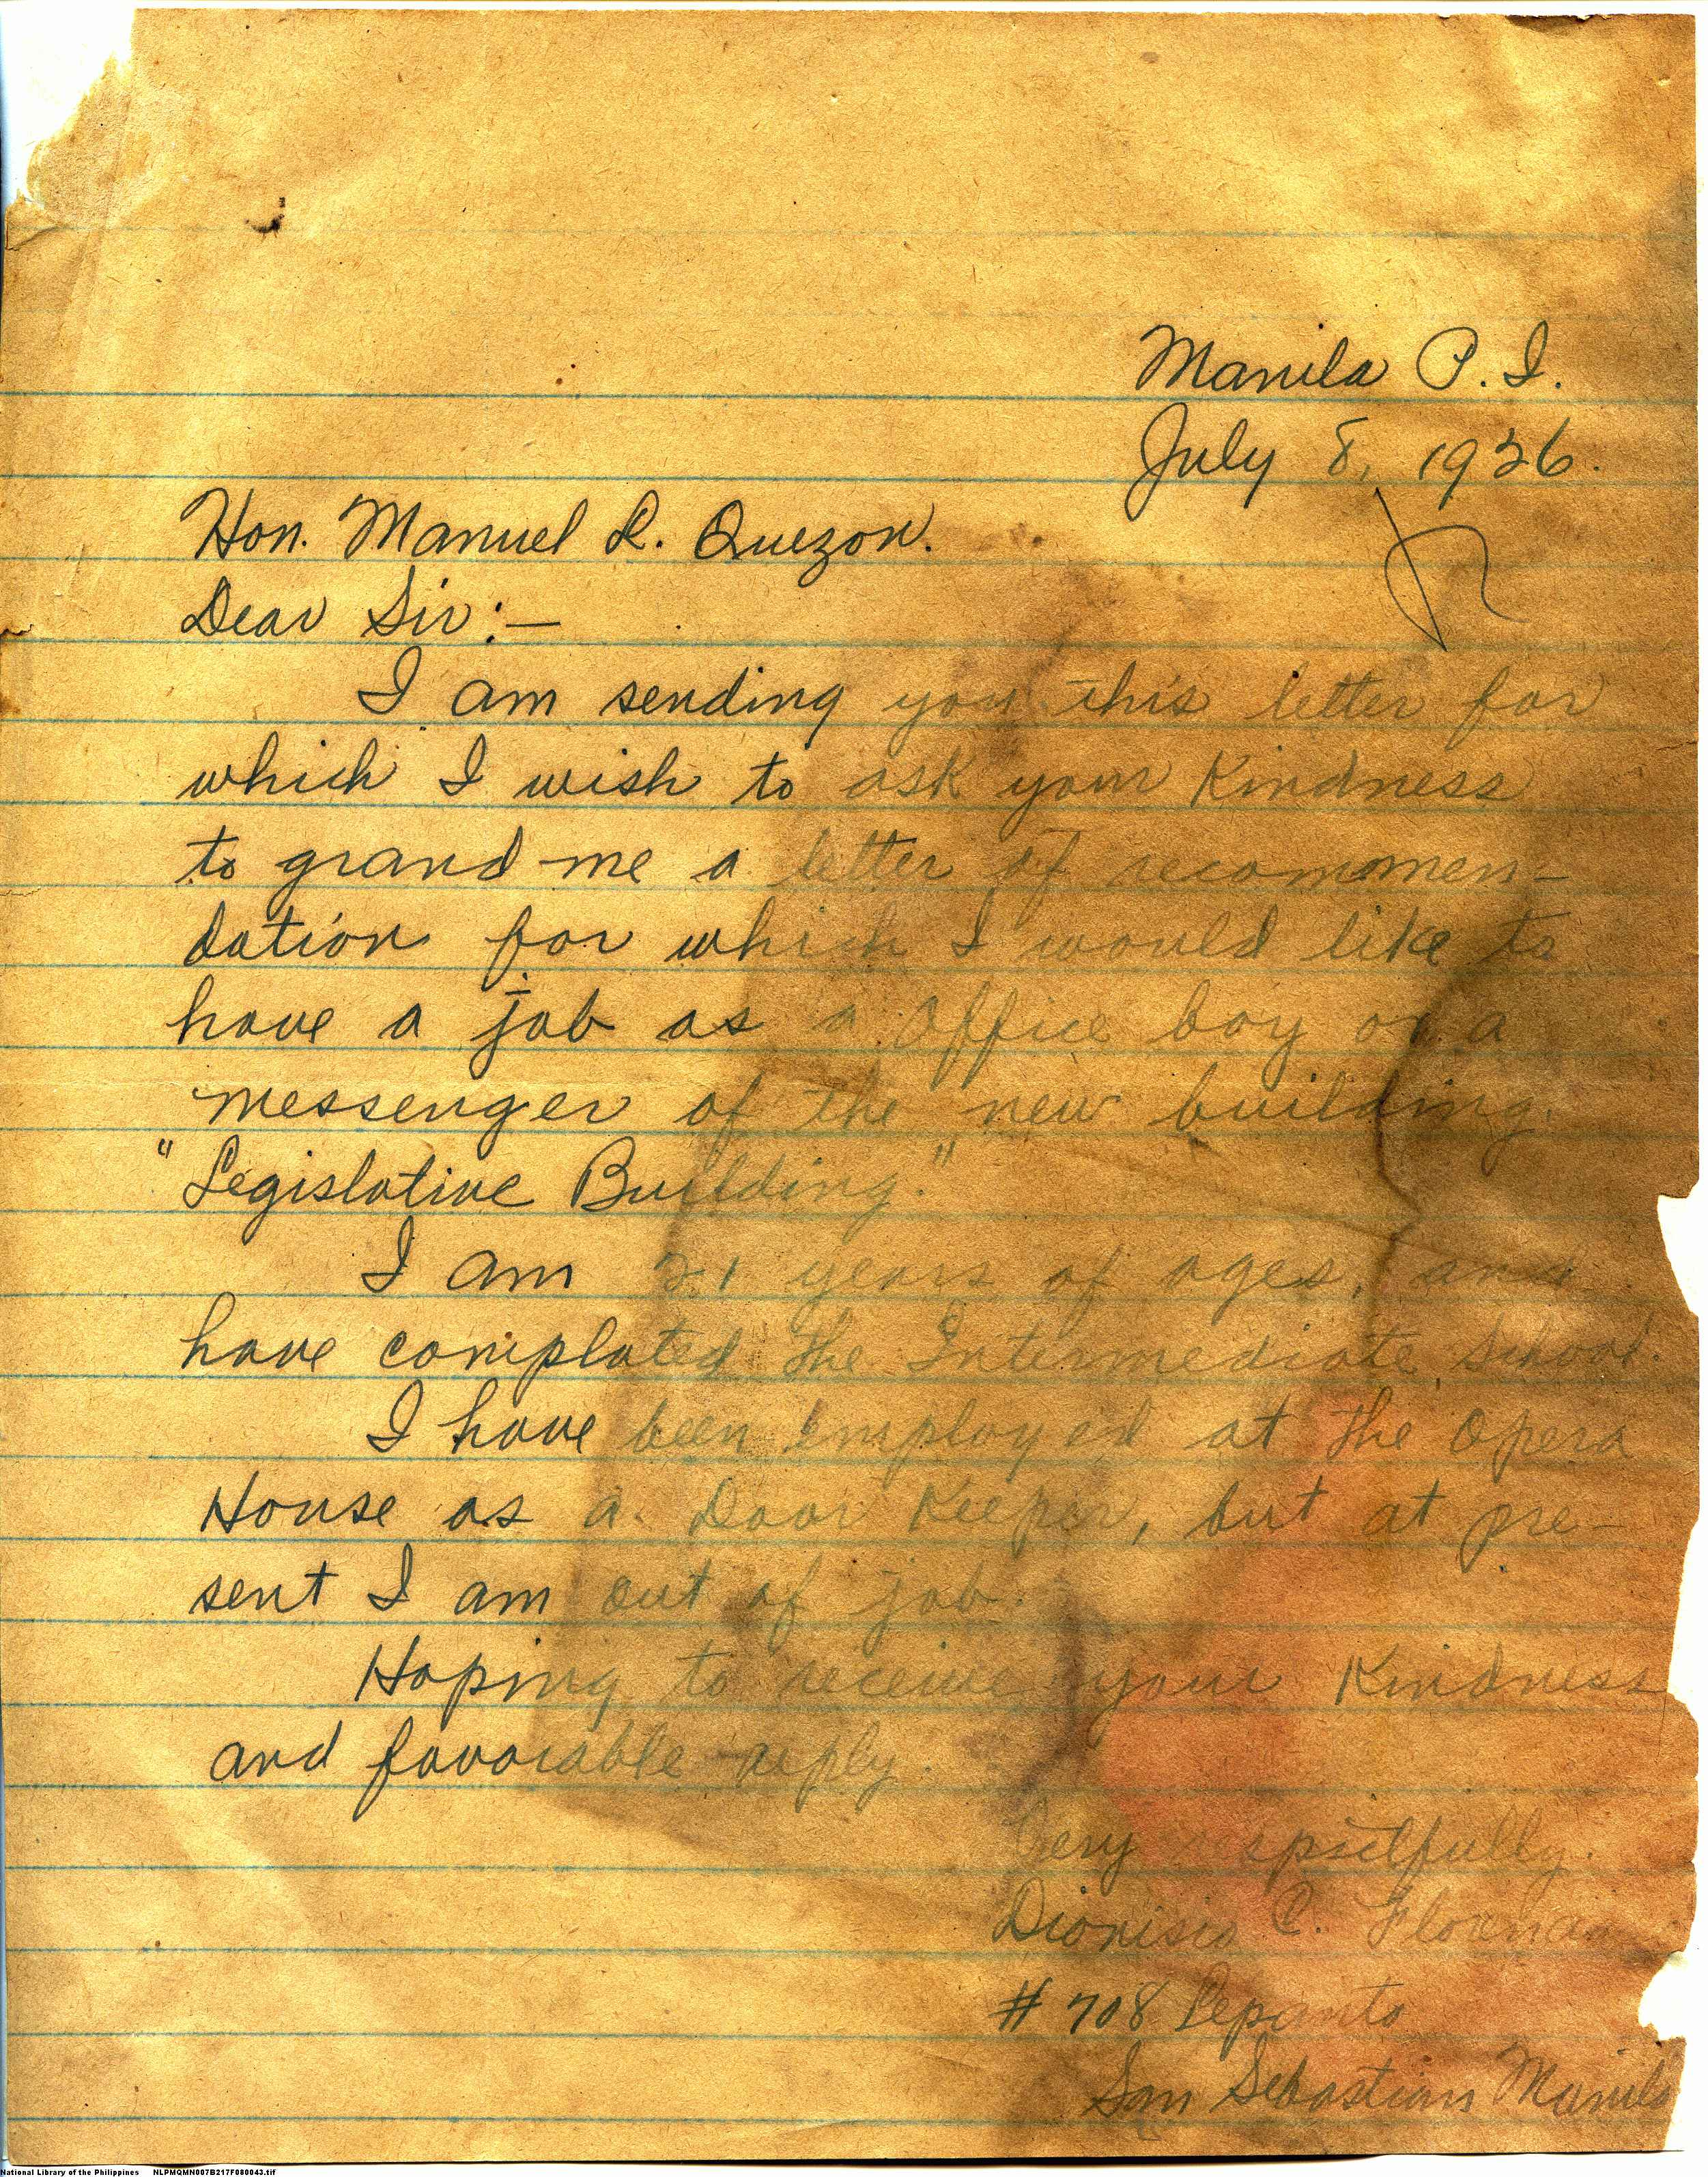 Manila P. I.
July 8, 1926.
Hon. Manuel L. Quezon.
Dear Sir:—
I am sending you this letter for
which I wish to ask your Kindness
to grand me a letter of recommen-
dation for which I would like to
have a job as a office boy or a
messenger of the new building.
"Legislative Building."
I am 21 years of ages, and
have completed the Intermediate School.
I have been employed at the Opera
House as a Door Keeper, but at pre-
sent I am out of job.
Hoping to receive your Kindness
and favorable reply.
Very respectfully.
Dionisio C.
# 708 Lepanto
San Sebastian Manila
National Library of the Philippines NLPMQMN007B217F080043.tif